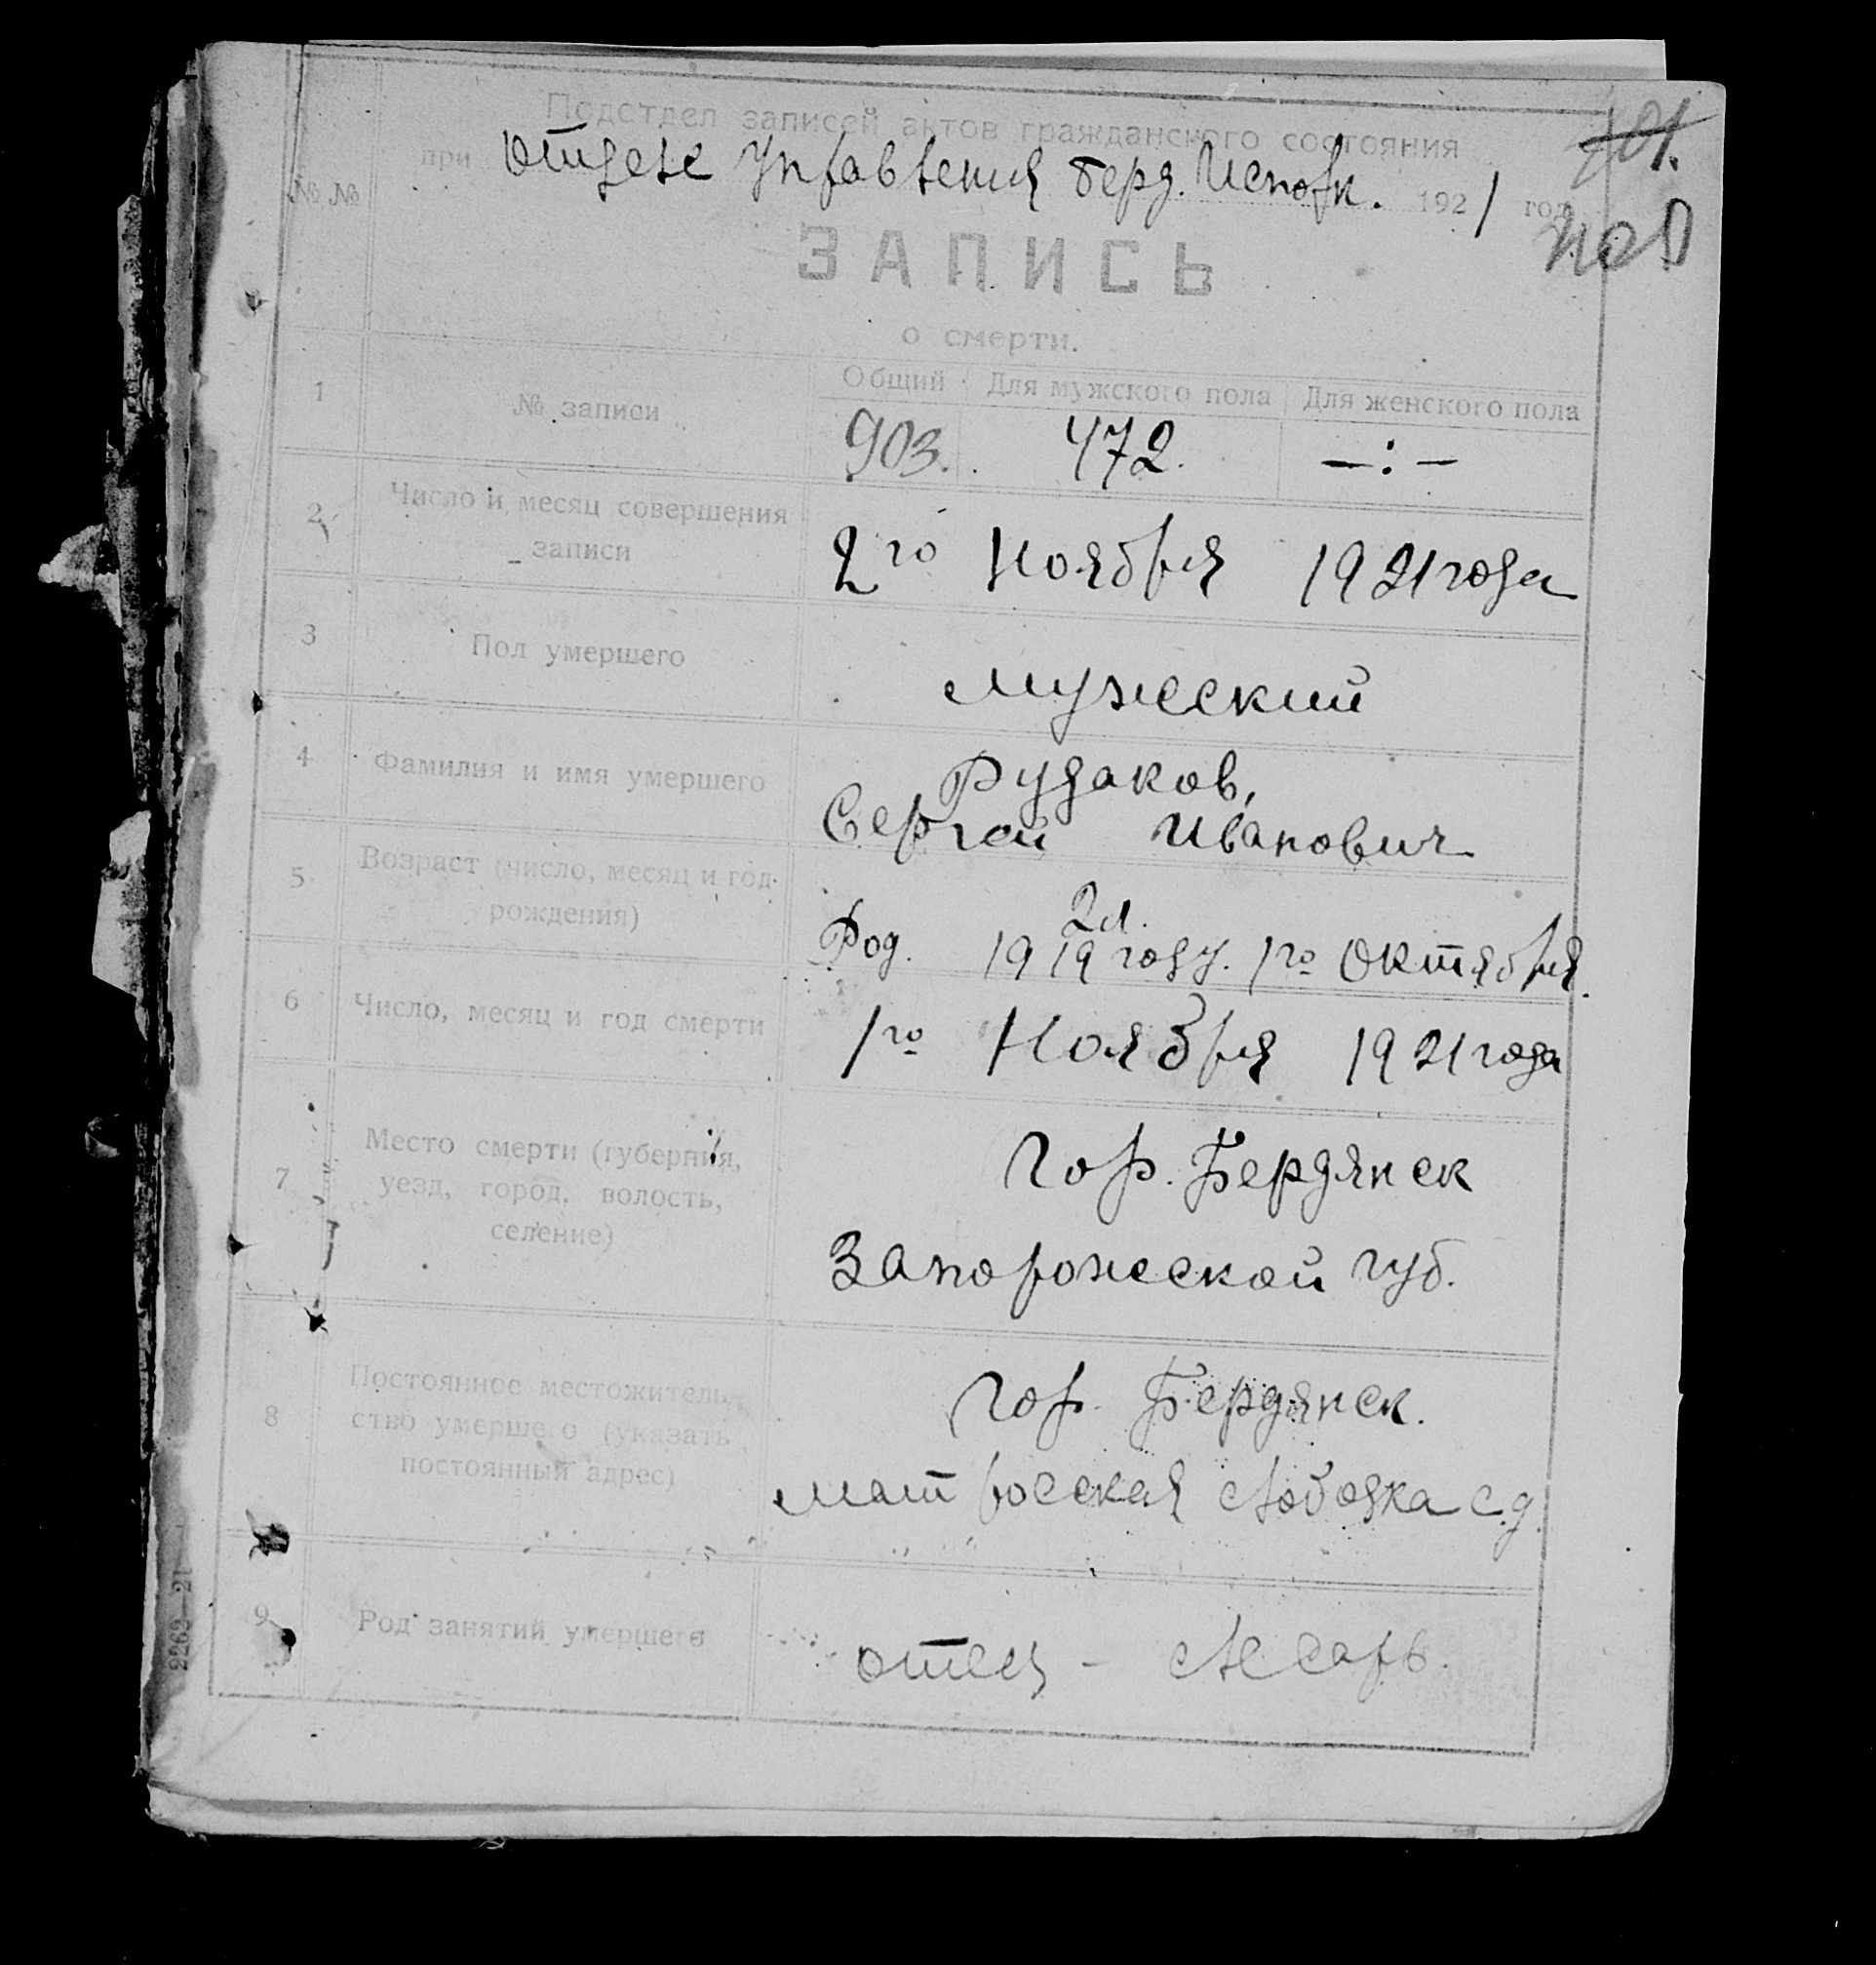 Подотдел записей актов гражданского состояния
при Отделе Управления Берд. Исполк. 1921 год
701.
№ №
ЗАПИСЬ
о смерти.
Общий Для мужского пола Для женского пола
1 № записи 903. 472. —:—
2 Число и месяц совершения
записи
2го Ноября 1921 года
3 Пол умершего мужеский
4 Фамилия и имя умершего Рудаков,
Сергей Иванович
5 Возраст (число, месяц и год
рождения)
2 л.
Род. 1919 году. 1го Октября.
6 Число, месяц и год смерти 1го Ноября 1921 года
7 Место смерти (губерния,
уезд, город, волость,
селение)
Гор. Бердянск
Запорожской губ.
8 Постоянное местожитель-
ство умершего (указать
постоянный адрес)
Гор. Бердянск.
матросская слободка с.д.
9 Род занятий умершего отец - слесарь.
2263—21